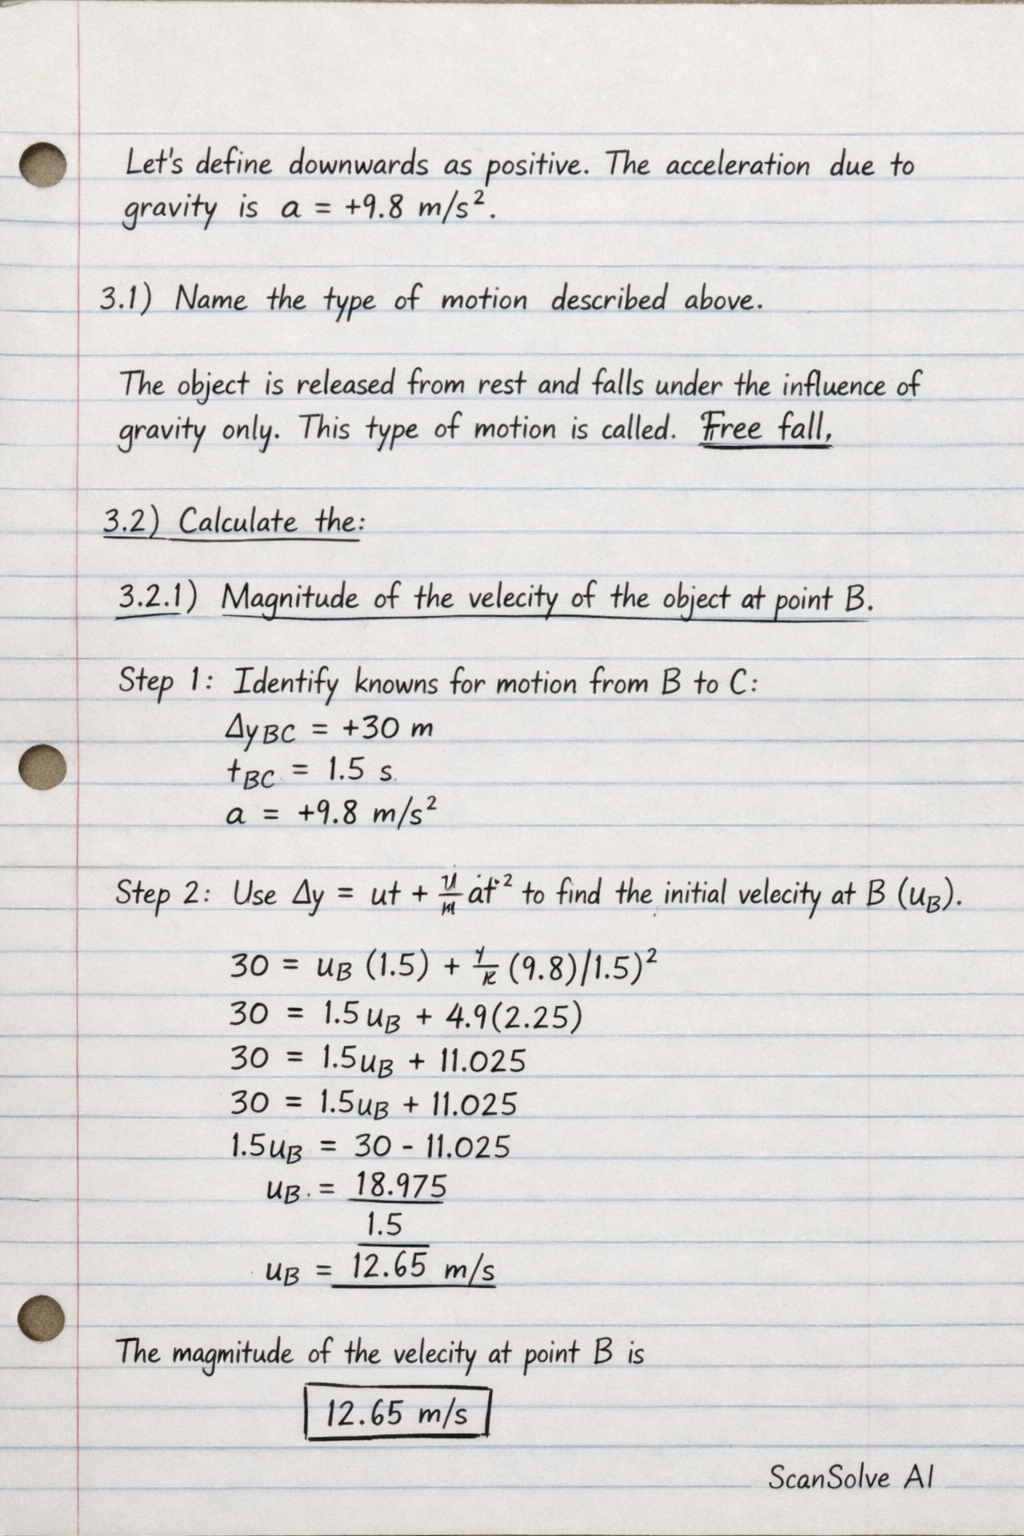 Let's define downwards as positive. The acceleration due to
gravity is a = +9.8 m/s².
3.1) Name the type of motion described above.
The object is released from rest and falls under the influence of
gravity only. This type of motion is called. Free fall,
3.2) Calculate the:
3.2.1) Magnitude of the velecity of the object at point B.
Step 1: Identify knowns for motion from B to C:
ΔyBC = +30 m
tBC = 1.5 s
a = +9.8 m/s²
Step 2: Use Δy = ut + at² to find the initial velecity at B (uB).
30 = uB (1.5) + (9.8)/1.5)²
30 = 1.5uB + 4.9(2.25)
30 = 1.5uB + 11.025
30 = 1.5uB + 11.025
1.5uB = 30 - 11.025
uB = 18.975
1.5
uB = 12.65 m/s
The magmitude of the velecity at point B is
12.65 m/s
ScanSolve AI